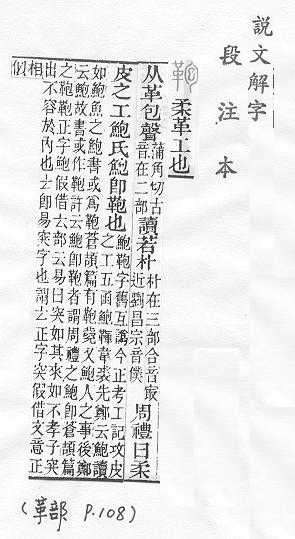 説文解字
段注本
鞄 柔革工也
从革包聲蒲角切古音在三部讀若朴朴在三部合音㝡近劉昌宗音僕周禮曰柔
皮之工鮑氏鮑卽鞄也鮑鞄字舊互譌今正考工記攻皮之工五函鮑韗韋裘先鄭云鮑讀
如鮑魚之鮑書或爲鞄蒼頡篇有鞄䩕又鮑人之事後鄭
云鮑故書或作鞄許云鮑卽鞄者謂周禮之鮑卽蒼頡篇
之鞄鞄正字鮑假借𠫓部云易曰突如其來如不孝子突
出不容於內也𠫓卽易突字也謂𠫓正字突假借文意正
相似
(革部 P.108)